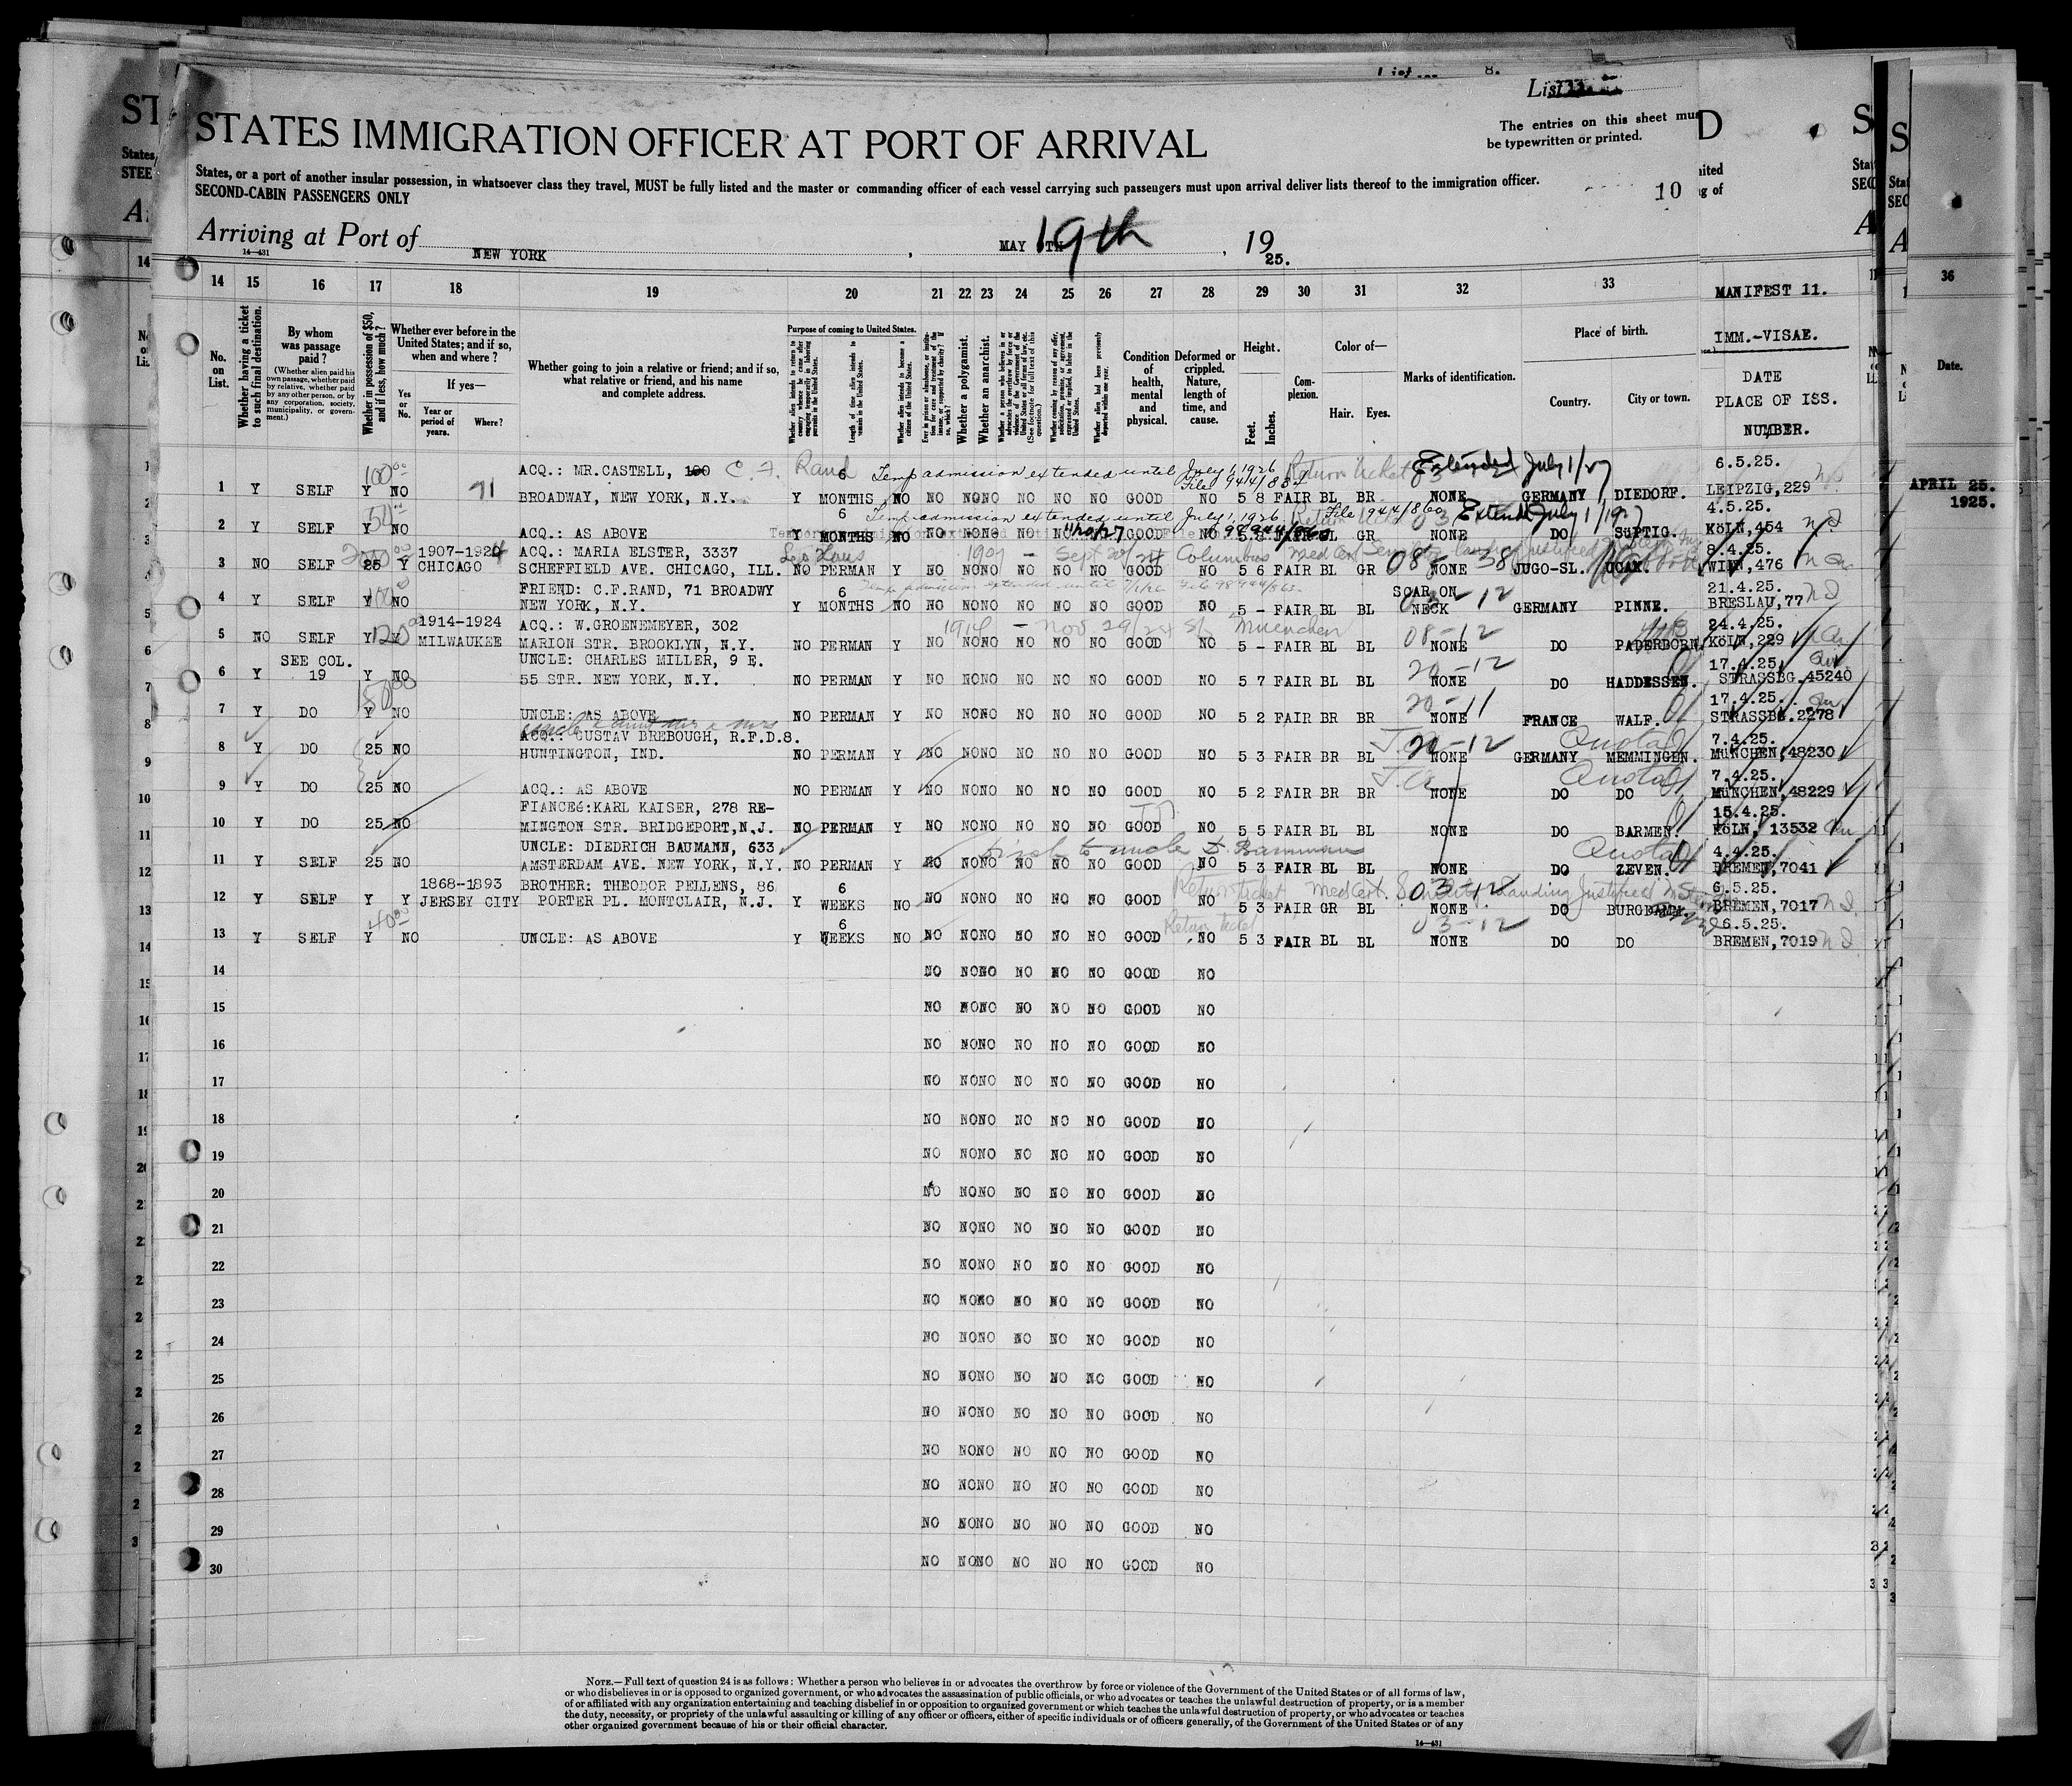 List
STATES IMMIGRATION OFFICER AT PORT OF ARRIVAL
The entries on this sheet mus
be typewritten or printed.
States, or a port of another insular possession, in whatsoever class they travel, MUST be fully listed and the master or commanding officer of each vessel carrying such passengers must upon arrival deliver lists thereof to the immigration officer.
SECOND-CABIN PASSENGERS ONLY
10
Arriving at Port of NEW YORK , MAY 19th , 1925.
14—431
14 15 16 17 18 19 20 21 22 23 24 25 26 27 28 29 30 31 32 33
MANIFEST 11.
IMM.-VISAE.
DATE
PLACE OF ISS.
NUMBER.
No. on List.
Whether having a ticket to such final destination.
By whom was passage paid?
(Whether alien paid his own passage, whether paid by relative, whether paid by any other person, or by any corporation, society, municipality, or government.)
Whether in possession of $50, and if less, how much?
Whether ever before in the United States; and if so, when and where?
Yes or No.
If yes—
Year or period of years.
Where?
Whether going to join a relative or friend; and if so, what relative or friend, and his name and complete address.
Purpose of coming to United States.
Length of time alien intends to remain in the United States.
Whether alien intends to become a citizen of the United States.
Whether a polygamist.
Whether an anarchist.
Condition of health, mental and physical.
Deformed or crippled. Nature, length of time, and cause.
Height.
Feet. Inches.
Complexion.
Color of—
Hair. Eyes.
Marks of identification.
Place of birth.
Country. City or town.
36
Date.
APRIL 25.
1925.
ACQ.: MR.CASTELL, 100 C. F. Rand 6 Temp admission extended until July 1, 1926 Return ticket Extended July 1/27 6.5.25.
1 Y SELF Y NO 71 BROADWAY, NEW YORK, N.Y. Y MONTHS NO NO NONO NO NO NO GOOD NO 5 8 FAIR BL BR NONE GERMANY DIEDORF. LEIPZIG,229
6 Temp admission extended until July 1, 1926 File 944/860 Extend July 1/1927 4.5.25.
2 Y SELF Y NO ACQ.: AS ABOVE Y MONTHS NO NO NONO NO NO GOOD NO GR DO SÜPTIG. KöLN,454
1907-1924 ACQ.: MARIA ELSTER, 3337 1907 - Sept 20/24 Columbus 8.4.25.
3 NO SELF 25 Y CHICAGO SCHEFFIELD AVE. CHICAGO, ILL. NO PERMAN Y NO NONO NO NO NO GOOD NO 5 6 FAIR BL GR NONE JUGO-SL. WIEN,476
FRIEND: C.F.RAND, 71 BROADWY 6 SCAR ON 21.4.25.
4 Y SELF Y NO NEW YORK, N.Y. Y MONTHS NO NO NONO NO NO NO GOOD NO 5 - FAIR BL BL NECK GERMANY PINNE. BRESLAU,77
1914-1924 ACQ.: W.GROENEMEYER, 302 1914 - Nov. 29/24 Muenchen 08-12 24.4.25.
5 NO SELF Y Y MILWAUKEE MARION STR. BROOKLYN, N.Y. NO PERMAN Y NO NONO NO NO NO GOOD NO 5 - FAIR BL BL NONE DO PADERBORN. KöLN,229
SEE COL. UNCLE: CHARLES MILLER, 9 E. 20-12 17.4.25.
6 Y 19 Y NO 55 STR. NEW YORK, N.Y. NO PERMAN Y NO NONO NO NO NO GOOD NO 5 7 FAIR BL BL NONE DO HADDESSEN. STRASSBG.45240
20-11 17.4.25.
7 Y DO Y NO UNCLE: AS ABOVE NO PERMAN Y NO NONO NO NO NO GOOD NO 5 2 FAIR BR BR NONE FRANCE WALF. STRASSBG.2278
ACQ.: GUSTAV BREBOUGH, R.F.D.8. 20-12 Quota 7.4.25.
8 Y DO 25 NO HUNTINGTON, IND. NO PERMAN Y NO NONO NO NO NO GOOD NO 5 3 FAIR BR BL NONE GERMANY MEMMINGEN. MüNCHEN,48230
Quota 7.4.25.
9 Y DO 25 NO ACQ.: AS ABOVE NO PERMAN Y NO NONO NO NO NO GOOD NO 5 2 FAIR BR BR NONE DO DO MüNCHEN,48229
FIANCEé:KARL KAISER, 278 RE- 15.4.25.
10 Y DO 25 NO MINGTON STR. BRIDGEPORT,N.J. NO PERMAN Y NO NONO NO NO NO GOOD NO 5 5 FAIR BL BL NONE DO BARMEN. KöLN, 13532
UNCLE: DIEDRICH BAUMANN, 633 to uncle D. Baumann Quota 4.4.25.
11 Y SELF 25 NO AMSTERDAM AVE. NEW YORK, N.Y. NO PERMAN Y NO NONO NO NO NO GOOD NO 5 3 FAIR BL BL NONE DO ZEVEN. BREMEN,7041
1868-1893 BROTHER: THEODOR PELLENS, 86 6 Return ticket Med Cert. 03-12 Landing Justified 6.5.25.
12 Y SELF Y Y JERSEY CITY PORTER PL. MONTCLAIR, N.J. Y WEEKS NO NO NONO NO NO NO GOOD NO 5 3 FAIR GR BL NONE DO BREMEN,7017
6 Return ticket 03-12 6.5.25.
13 Y SELF Y NO UNCLE: AS ABOVE Y WEEKS NO NO NONO NO NO NO GOOD NO 5 3 FAIR BL BL NONE DO DO BREMEN,7019
14 NO NONO NO NO NO GOOD NO
15 NO NONO NO NO NO GOOD NO
16 NO NONO NO NO NO GOOD NO
17 NO NONO NO NO NO GOOD NO
18 NO NONO NO NO NO GOOD NO
19 NO NONO NO NO NO GOOD NO
20 NO NONO NO NO NO GOOD NO
21 NO NONO NO NO NO GOOD NO
22 NO NONO NO NO NO GOOD NO
23 NO NONO NO NO NO GOOD NO
24 NO NONO NO NO NO GOOD NO
25 NO NONO NO NO NO GOOD NO
26 NO NONO NO NO NO GOOD NO
27 NO NONO NO NO NO GOOD NO
28 NO NONO NO NO NO GOOD NO
29 NO NONO NO NO NO GOOD NO
30 NO NONO NO NO NO GOOD NO
NOTE.—Full text of question 24 is as follows: Whether a person who believes in or advocates the overthrow by force or violence of the Government of the United States or of all forms of law,
or who disbelieves in or is opposed to organized government, or who advocates the assassination of public officials, or who advocates or teaches the unlawful destruction of property, or is a member
of or affiliated with any organization entertaining and teaching disbelief in or opposition to organized government or which teaches the unlawful destruction of property, or who advocates or teaches
the duty, necessity, or propriety of the unlawful assaulting or killing of any officer or officers, either of specific individuals or of officers generally, of the Government of the United States or of any
other organized government because of his or their official character.
14—431